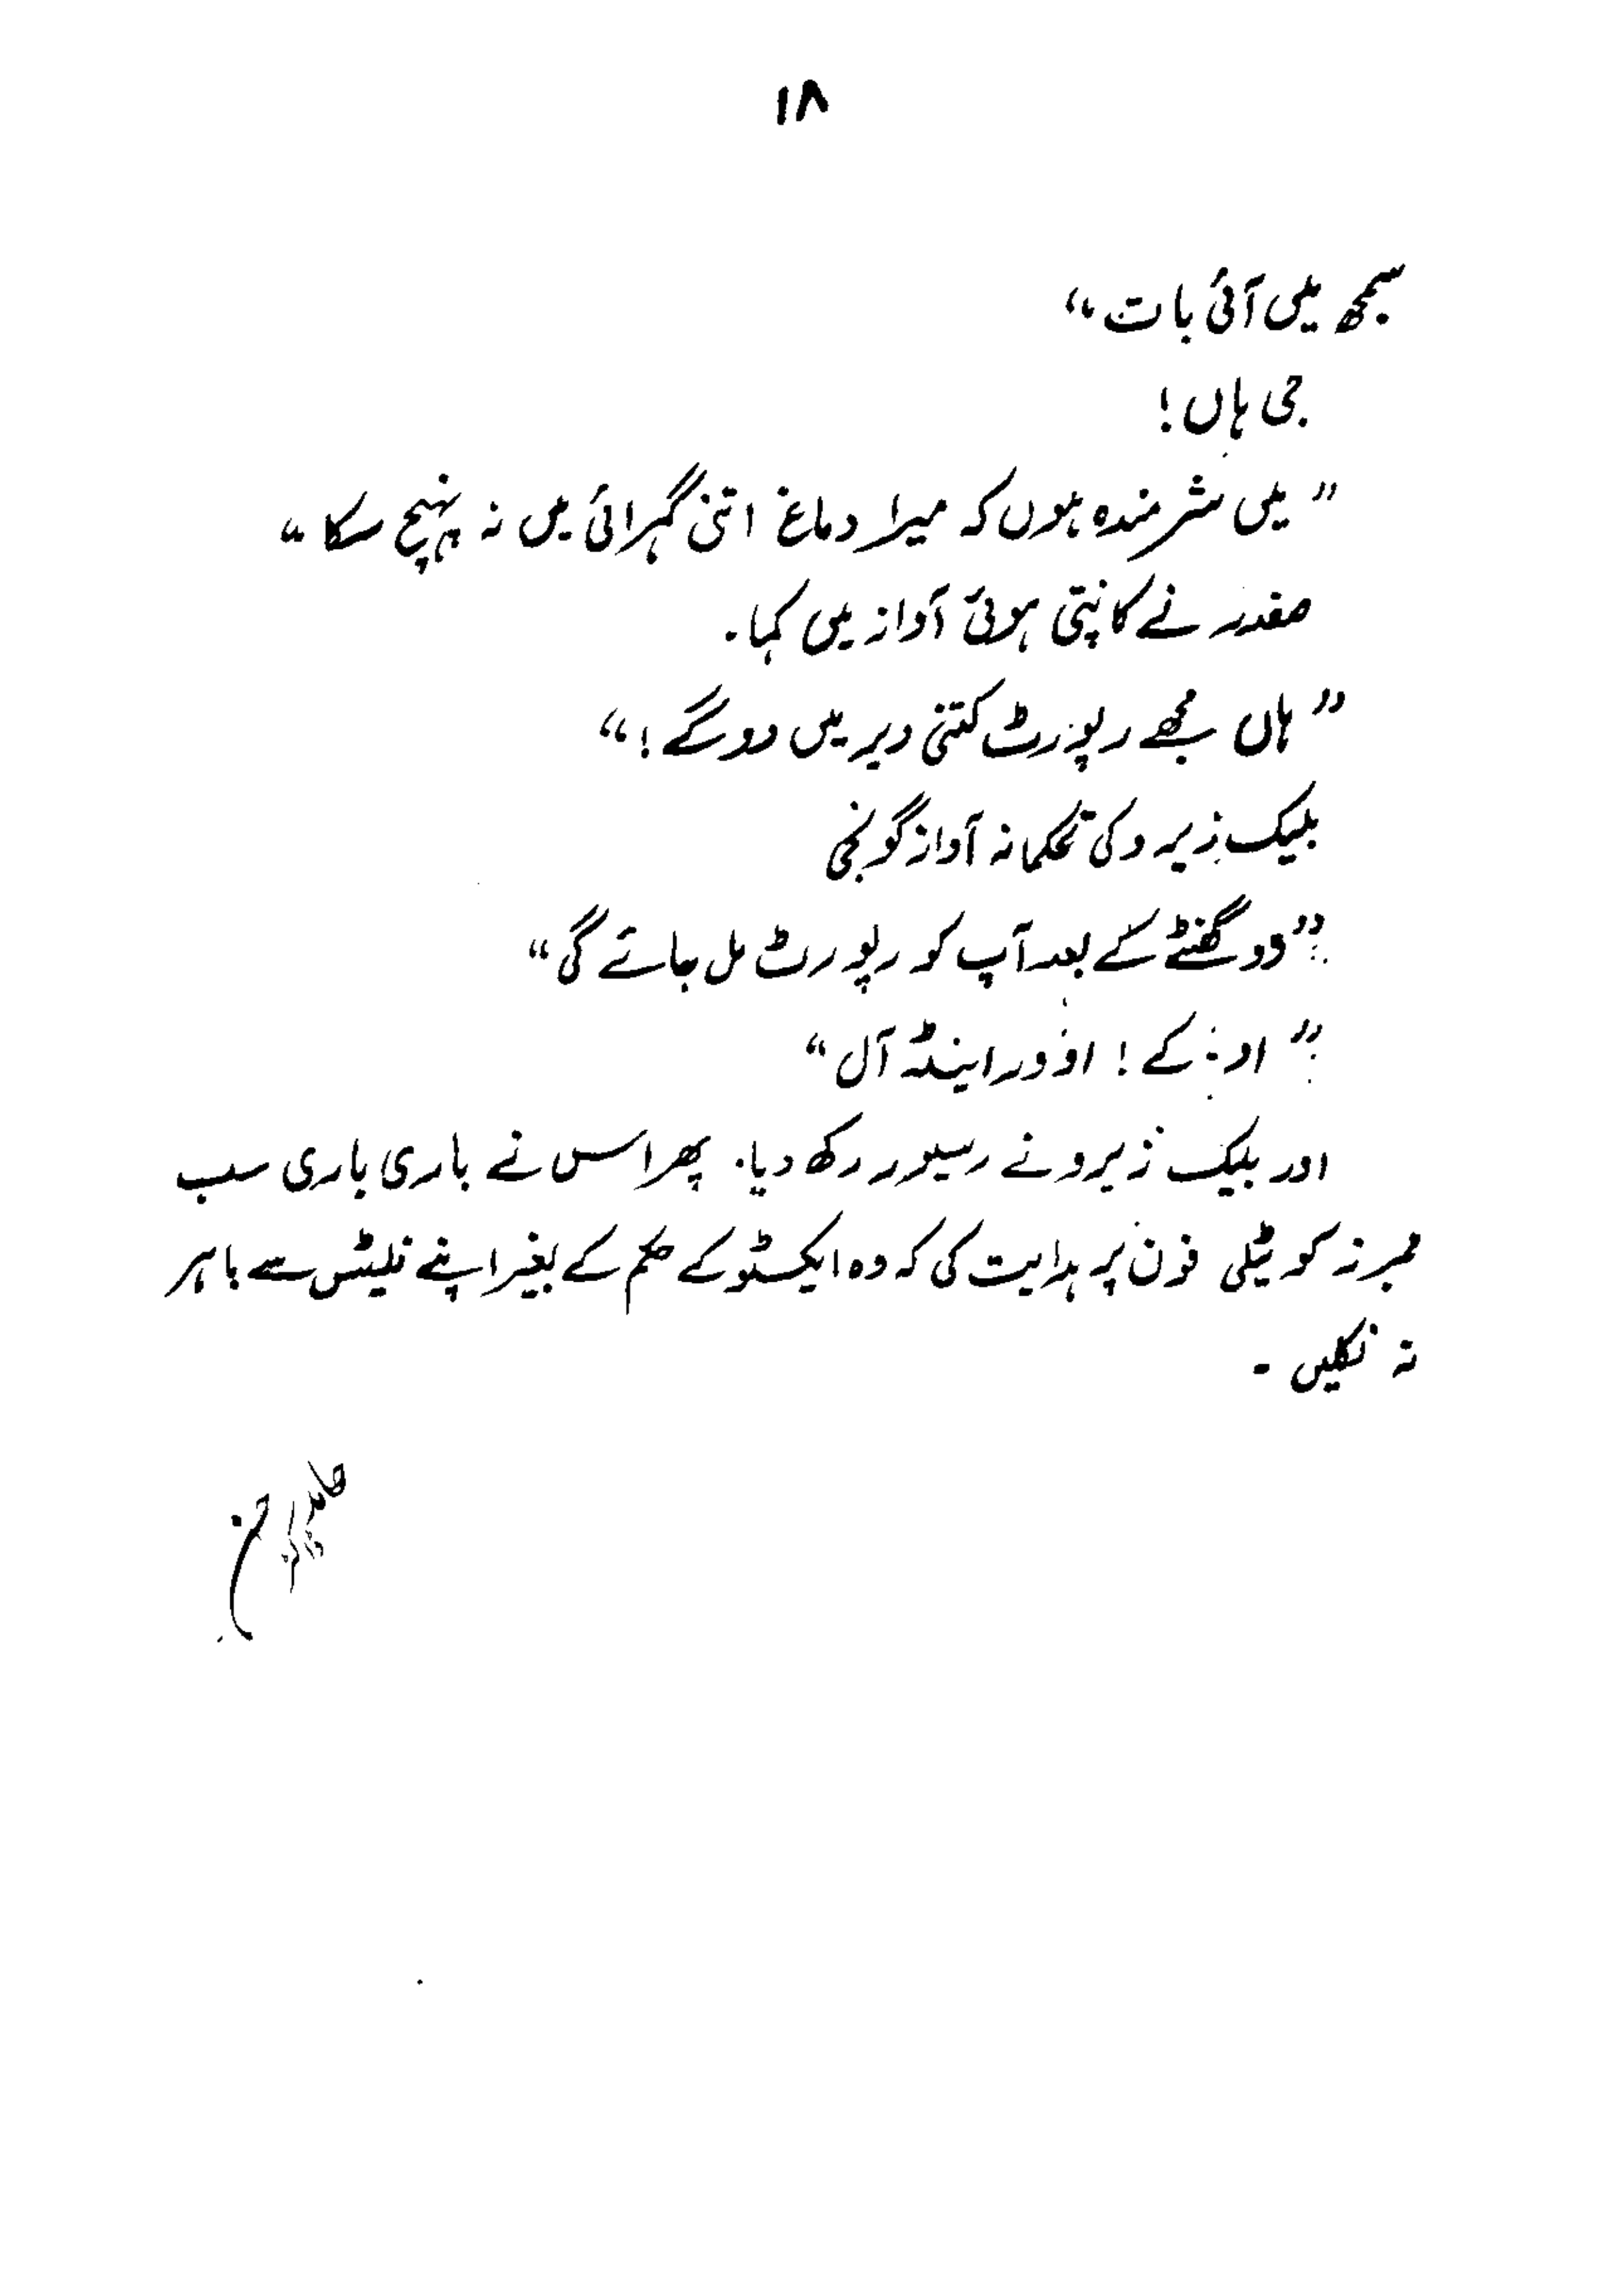 ۱۸
سمجھ میں آئی بات“
جی ہاں!
”میں شرمندہ ہوں کہ میرا دماغ اتنی گہرائی میں نہ پہنچ سکا“
صفدر نے کانپتی ہوئی آواز میں کہا۔
”ہاں مجھے رپورٹ کتنی دیر میں دو گے!“
بلیک زیرو کی تحکمانہ آواز گونجی
”دو گھنٹے کے بعد آپ کو رپورٹ مل جائے گی“
”او۔ کے! اوور اینڈ آل“
اور بلیک زیرو نے رسیور رکھ دیا۔ پھر اس نے باری باری سب
ممبرز کو ٹیلی فون پر ہدایت کی کہ وہ ایکسٹو کے حکم کے بغیر اپنے فلیٹس سے باہر
نہ نکلیں ۔